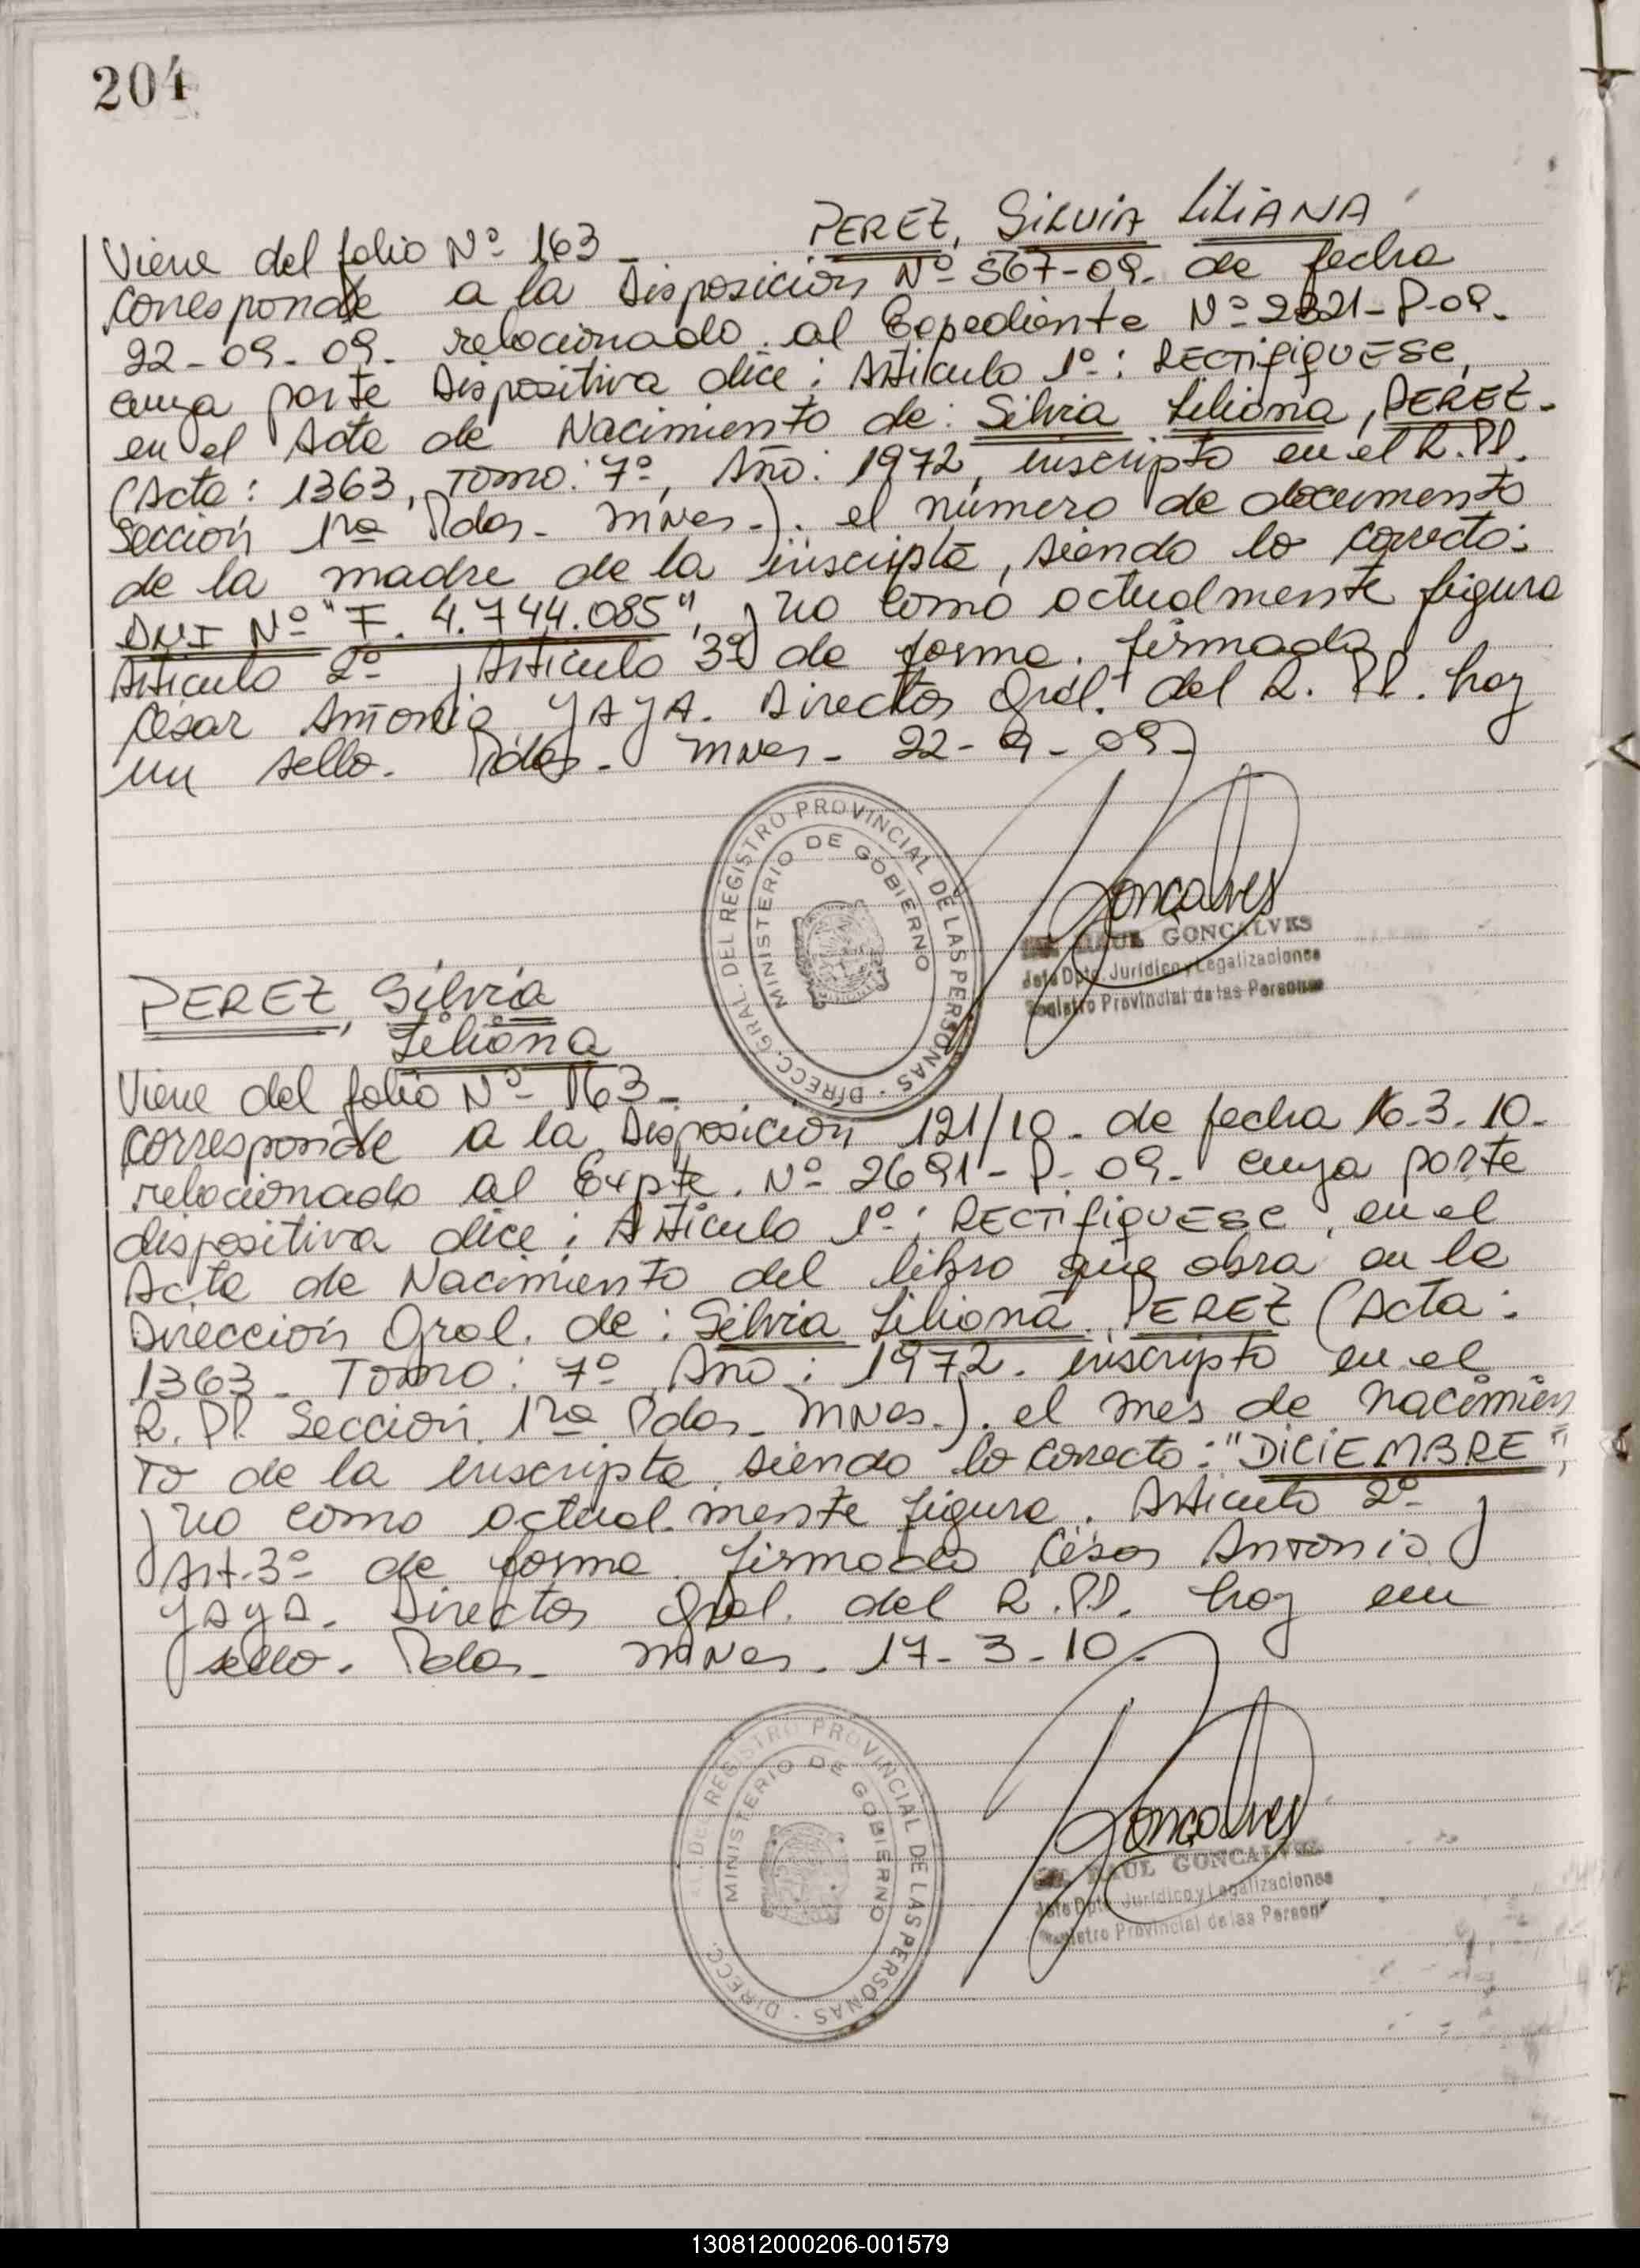 204
PEREZ, SILVIA LILIANA
Viene del folio Nº 163 -
corresponde a la Disposición Nº 567-09. de fecha
22-09-09. relacionado al Expediente Nº 2321-P-09.
cuya parte Dispositiva dice: Artículo 1º: RECTIFIQUESE,
en el Acta de Nacimiento de: Silvia Liliana, PEREZ.
(Acta: 1363, Tomo: 7º, Año: 1972, inscripta en el R.PP.
Sección 1ra Pdas. Mnes.). el número de documento
de la madre de la inscripta, siendo lo correcto:
DNI Nº "F. 4.744.085", y no como actualmente figura
Artículo 2º y Artículo 3º de forma. firmado
César Antonio YAYA. Director Gral. del R. PP. hay
un sello. Pdas. Mnes. 22-9-09-
DIRECC. GRAL. DEL REGISTRO PROVINCIAL DE LAS PERSONAS
MINISTERIO DE GOBIERNO
Goncalves
RAUL GONCALVES
Jefe Dpto. Jurídico y Legalizaciones
Registro Provincial de las Personas
PEREZ, Silvia
Liliana
Viene del folio Nº 163-
corresponde a la Disposición 121/10. de fecha 16-3-10-
relacionado al Expte. Nº 2691-P-09. cuya parte
dispositiva dice: Artículo 1º: RECTIFIQUESE, en el
Acta de Nacimiento del libro que obra en la
Dirección Gral. de: Silvia Liliana, PEREZ (Acta:
1363 - Tomo: 7º Año: 1972. inscripta en el
R. PP. Sección 1ra Pdas. Mnes.). el mes de nacimien
to de la inscripta, siendo lo correcto: "DICIEMBRE",
y no como actualmente figura. Artículo 2º y
Art. 3º de forma. firmado César Antonio
YAYA. Director Gral. del R.PP. hay un
sello. Pdas. Mnes. 17-3-10.
DIRECC. DEL REGISTRO PROVINCIAL DE LAS PERSONAS
MINISTERIO DE GOBIERNO
Goncalves
RAUL GONCALVES
Jefe Dpto. Jurídico y Legalizaciones
Registro Provincial de las Person
130812000206-001579